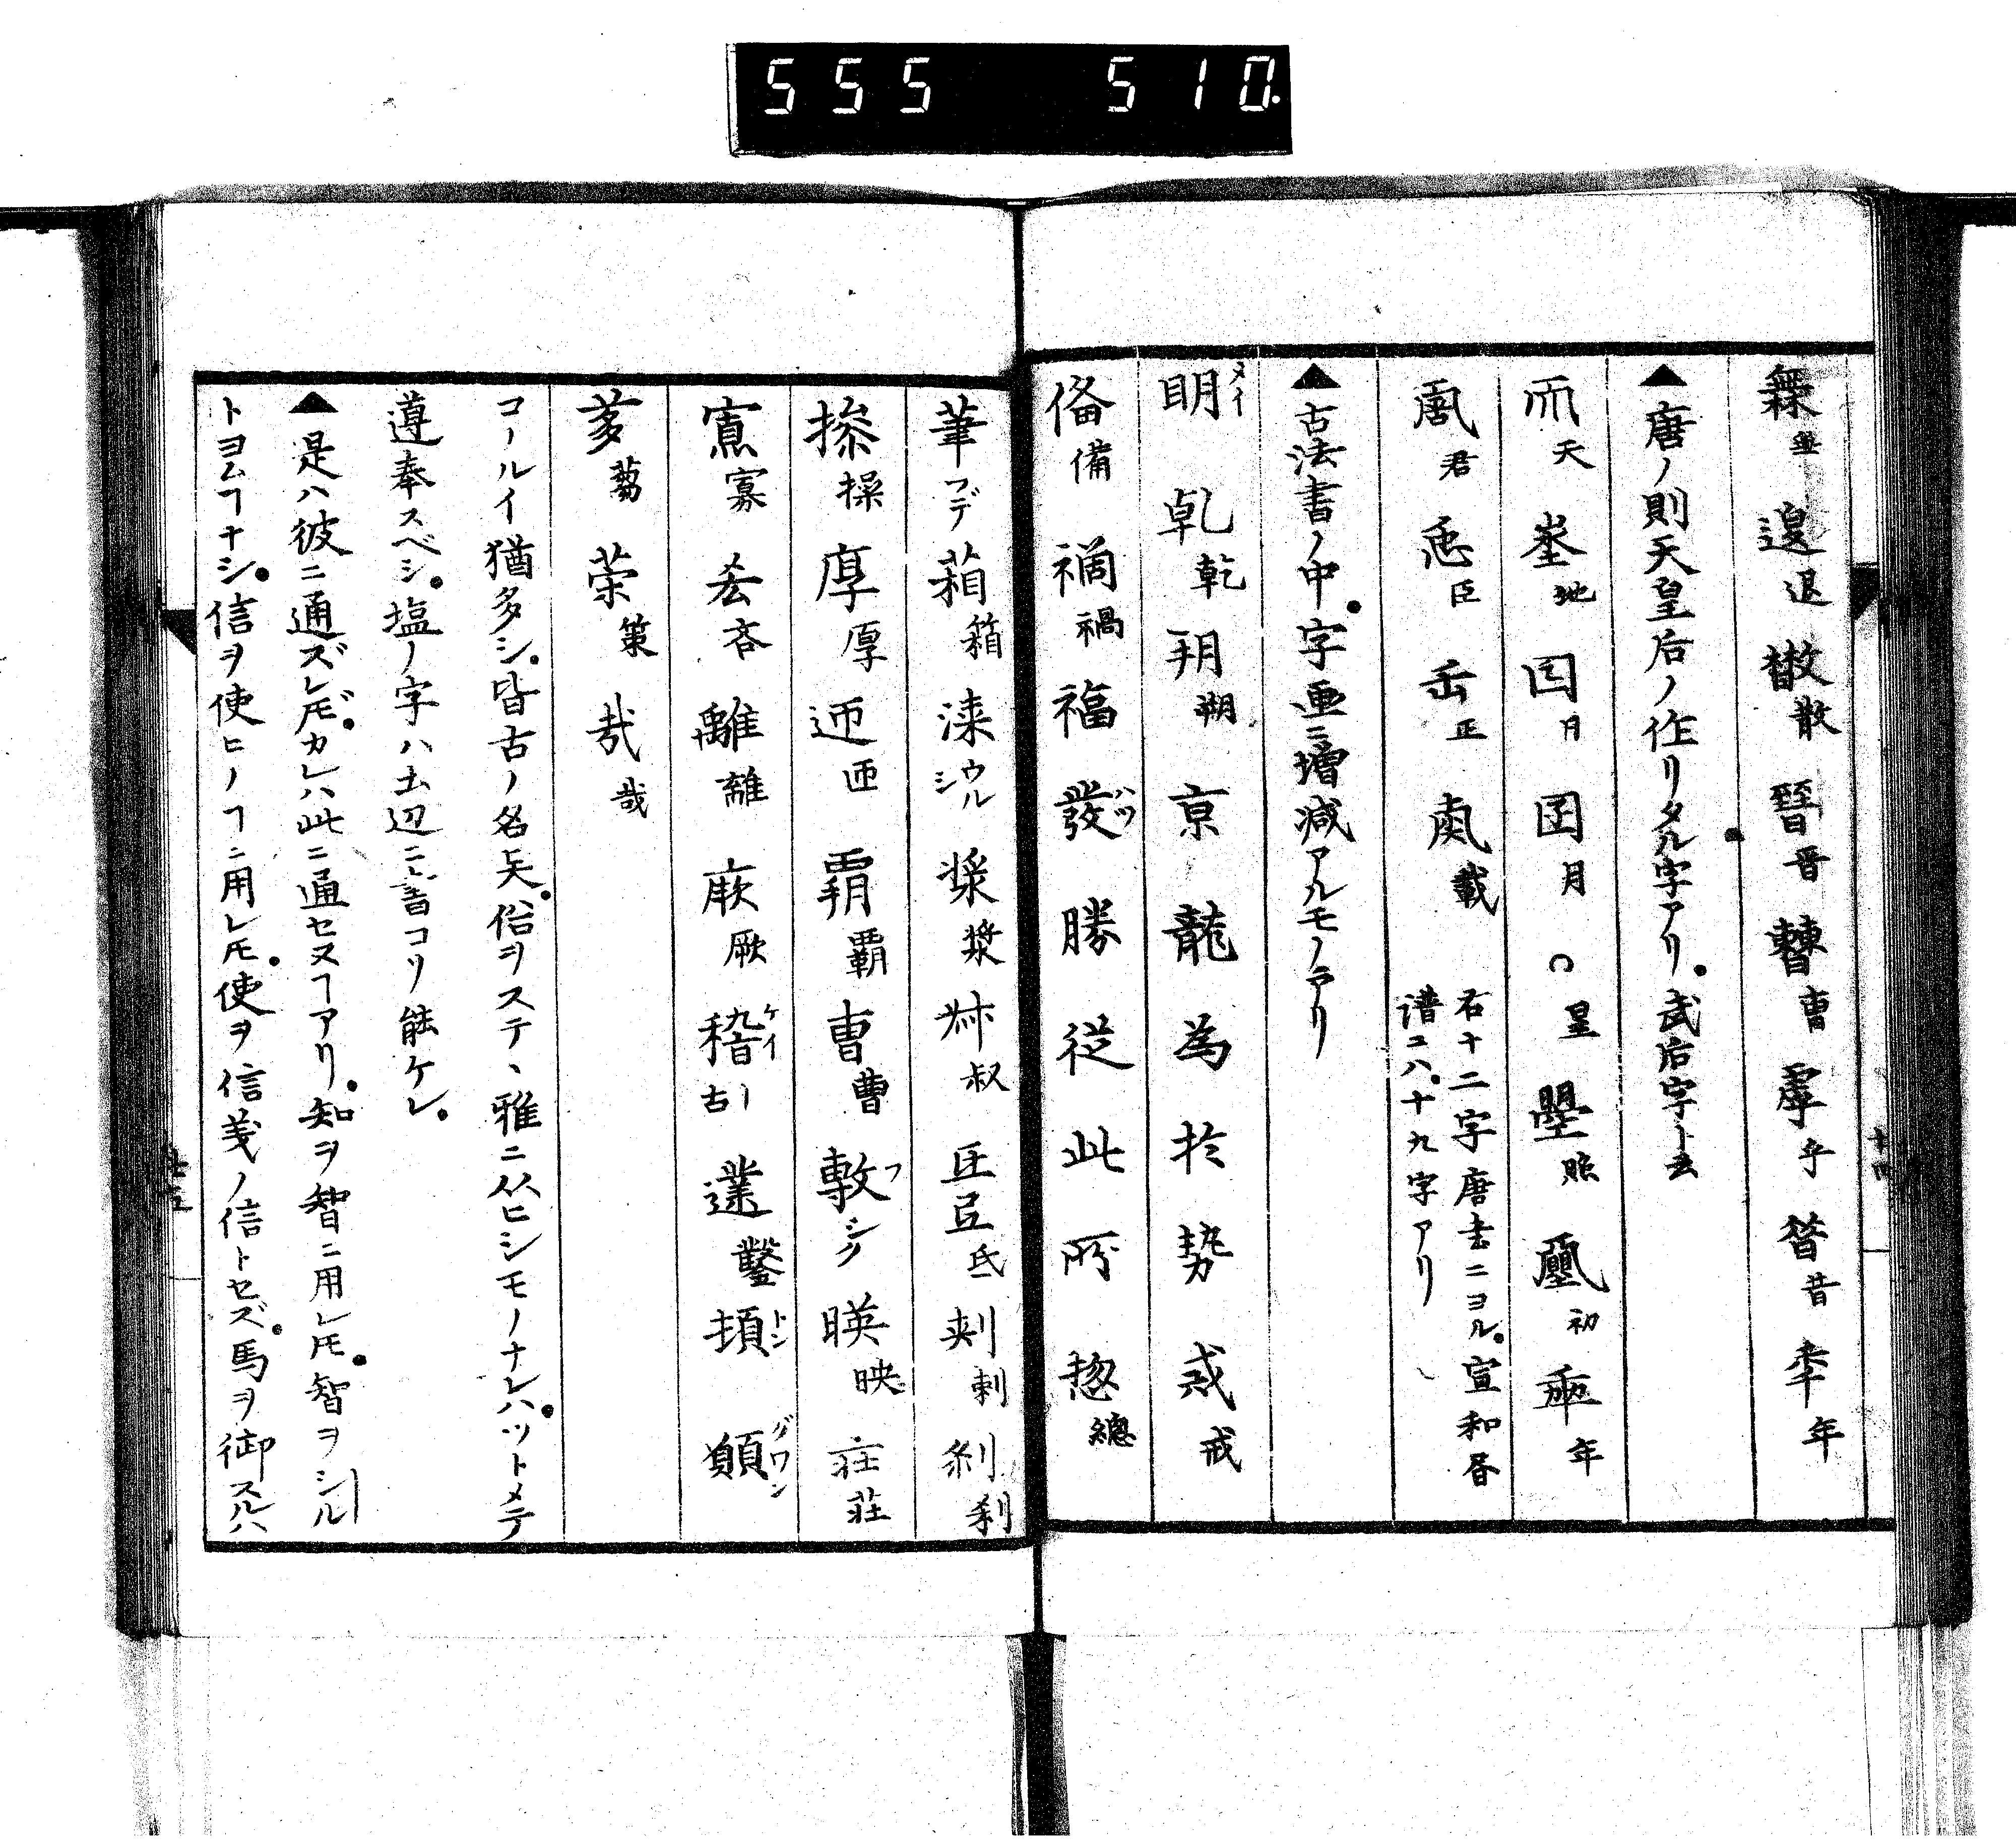 555 510.
橆無 𨓤退 㪚散 晉晋 曹 㝿乎 㫺昔 秊年
▲唐ノ則天皇后ノ作リタル字アリ。武后字ト云
𠀑天 埊地 囜日 囝月 〇星 曌照 𡔈初 𠡦年
𠁈君 𢘑臣 𠙺正 𡕀載 右十二字唐書ニヨル。宣和書
譜ニハ。十九字アリ
▲古法書ノ中。字画ニ増減アルモノアリ
眀メイ 乹乾 玥朔 亰 龍 為 扵 㔟 戒
俻備 禍 福 發ハツ 勝 従 此 所 揔總
茟フデ 葙箱 漆ウルシ 漿 叔 氐 刾刺 刹
掺操 厚 迊匝 覇覇 曺曹 敷フシク 暎映 庄荘
寡 吝 離 厥 稽ケイ古 鑿 頓トン 願グワン
蒭 策 㢤哉
コノルイ猶多シ。皆古ノ名矢。俗ヲステ、雅ニ从ヒシモノナレハ。ツトメテ
遵奉スベシ。塩ノ字ハ土辺ニ書コソ能ケレ。
▲是ハ彼ニ通ズレ𪜈。カレハ此ニ通セヌヿアリ。知ヲ智ニ用レ𪜈。智ヲシル
トヨムヿナシ。信ヲ使ヒノヿニ用レ𪜈。使ヲ信義ノ信トセズ。馬ヲ御スルハ